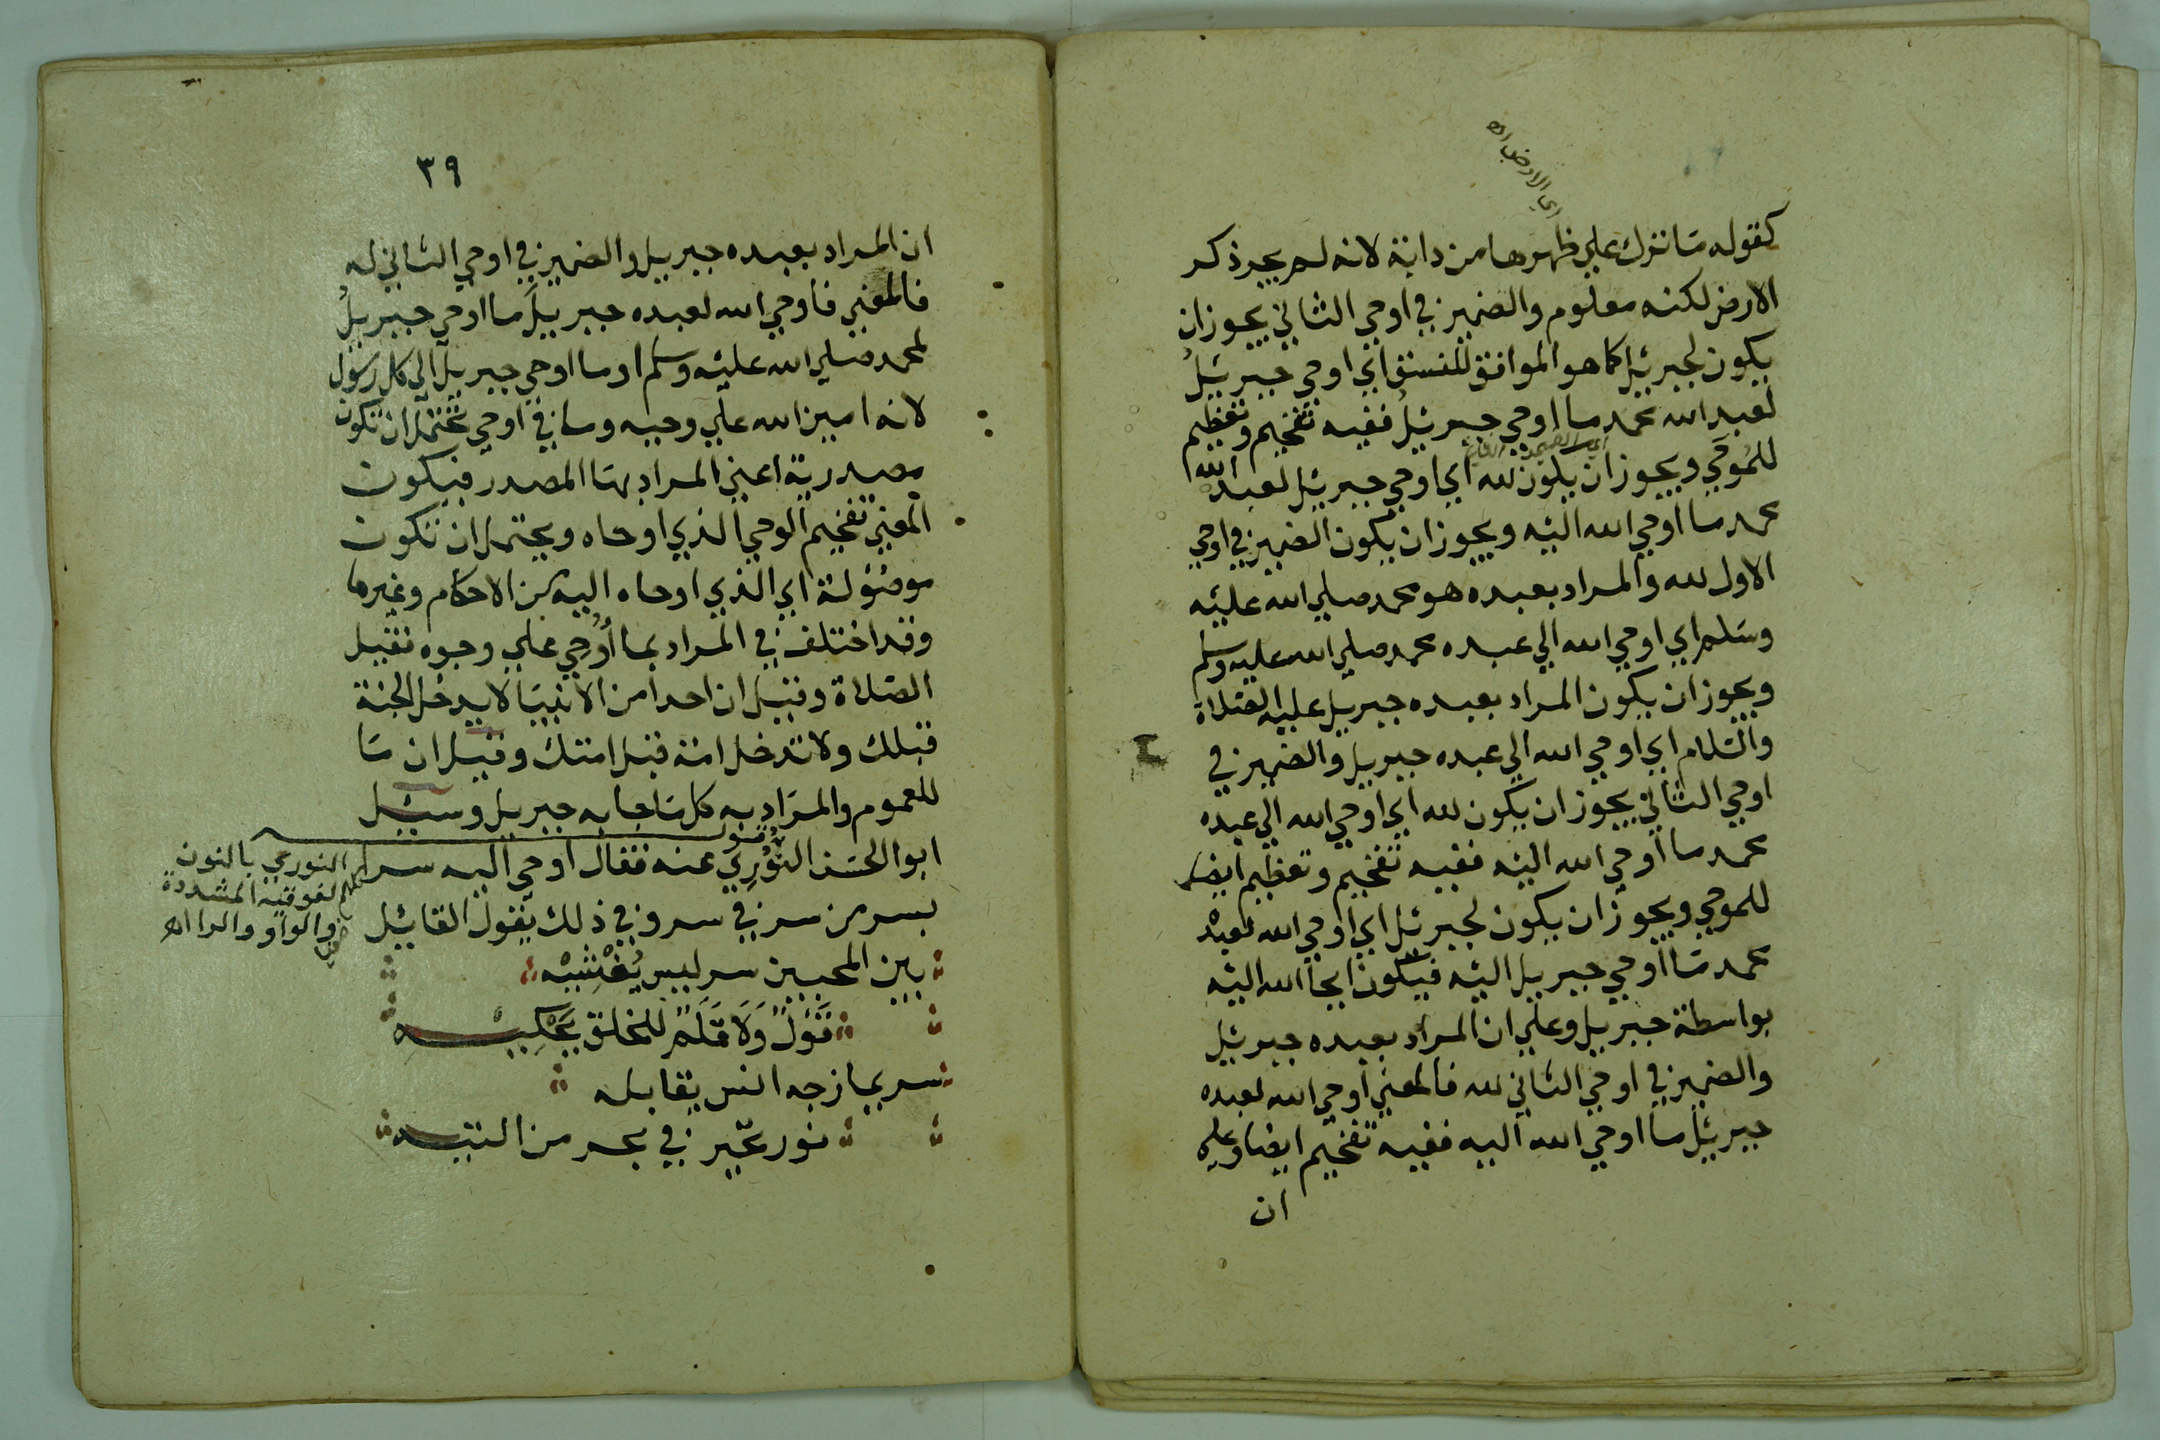 اي الارض اه
كقوله ما ترك علي ظهرها من دابة لانه لم يجر ذكر
الارض لكنه معلوم والضمير في اوحي الثاني يجوز ان
يكون لجبرئيل كما هو الموافق للنسق اي اوحي جبرئيل
لعبد الله محمد ما اوحي جبرئيل ففيه تفخيم وتعظيم
للموحي ويجوز ان يكون لله اي اوحي جبرئيل لعبد الله
محمد ما اوحي الله اليه ويجوز ان يكون الضمير في اوحي
الاول لله والمراد بعبده هو محمد صلي الله عليه
وسلم اي اوحي الله الي عبده محمد صلي الله عليه وسلم
ويجوز ان يكون المراد بعبده جبريل عليه الصلاة
والسلام اي اوحي الله الي عبده جبريل والضمير في
اوحي الثاني يجوز ان يكون لله اي اوحي الله الي عبده
محمد ما اوحي الله اليه ففيه تفخيم وتعظيم ايضا
للموحي ويجوز ان يكون لجبرئل اي اوحي الله لعبده
محمد ما اوحي جبريل اليه فيكون ايحا الله اليه
بواسطة جبريل وعلي ان المراد بعبده جبرئيل
والضمير في اوحي الثاني لله فالمعني اوحي الله لعبده
جبرئيل ما اوحي الله اليه ففيه تفخيم ايضا وعلي
ان
٣٩
ان المراد بعبده جبريل والضمير في اوحي الثاني له
فالمعني فاوحي الله لعبده جبريل ما اوحي جبريل
لمحمد صلي الله عليه وسلم او ما اوحي جبريل الي كل رسول
لانه امين الله علي وحيه وما في اوحي تحتمل ان تكون
مصدرية اعني المراد بها المصدر فيكون
المعني تفخيم الوحي الذي اوحاه ويحتمل ان تكون
موصولة اي الذي اوحاه اليه من الاحكام وغيرها
وقد اختلف في المراد بما أُوحِي علي وجوه فقيل
الصلاة وقيل ان احدا من الانبيا لا يدخل الجنة
قبلك ولا تدخل امة قبل امتك وقيل ان ما
للعموم والمراد به كل ما جا به جبريل وسئيل
ابوا الحسن النُّورِي عنه فقال اوحي اليه سرا
بسر من سر في سر وفي ذلك يقول القائيل
النوري بالنون
الفوقية المشددة
والواو والرا اه
بين المحبين سر ليس يُفْشِيْه
قَوْلٌ وَلَا قَلَمٌ للخلق يَحْكِيْه
سر يمازجه انس يقابله
نور تحير في بحر من التيه